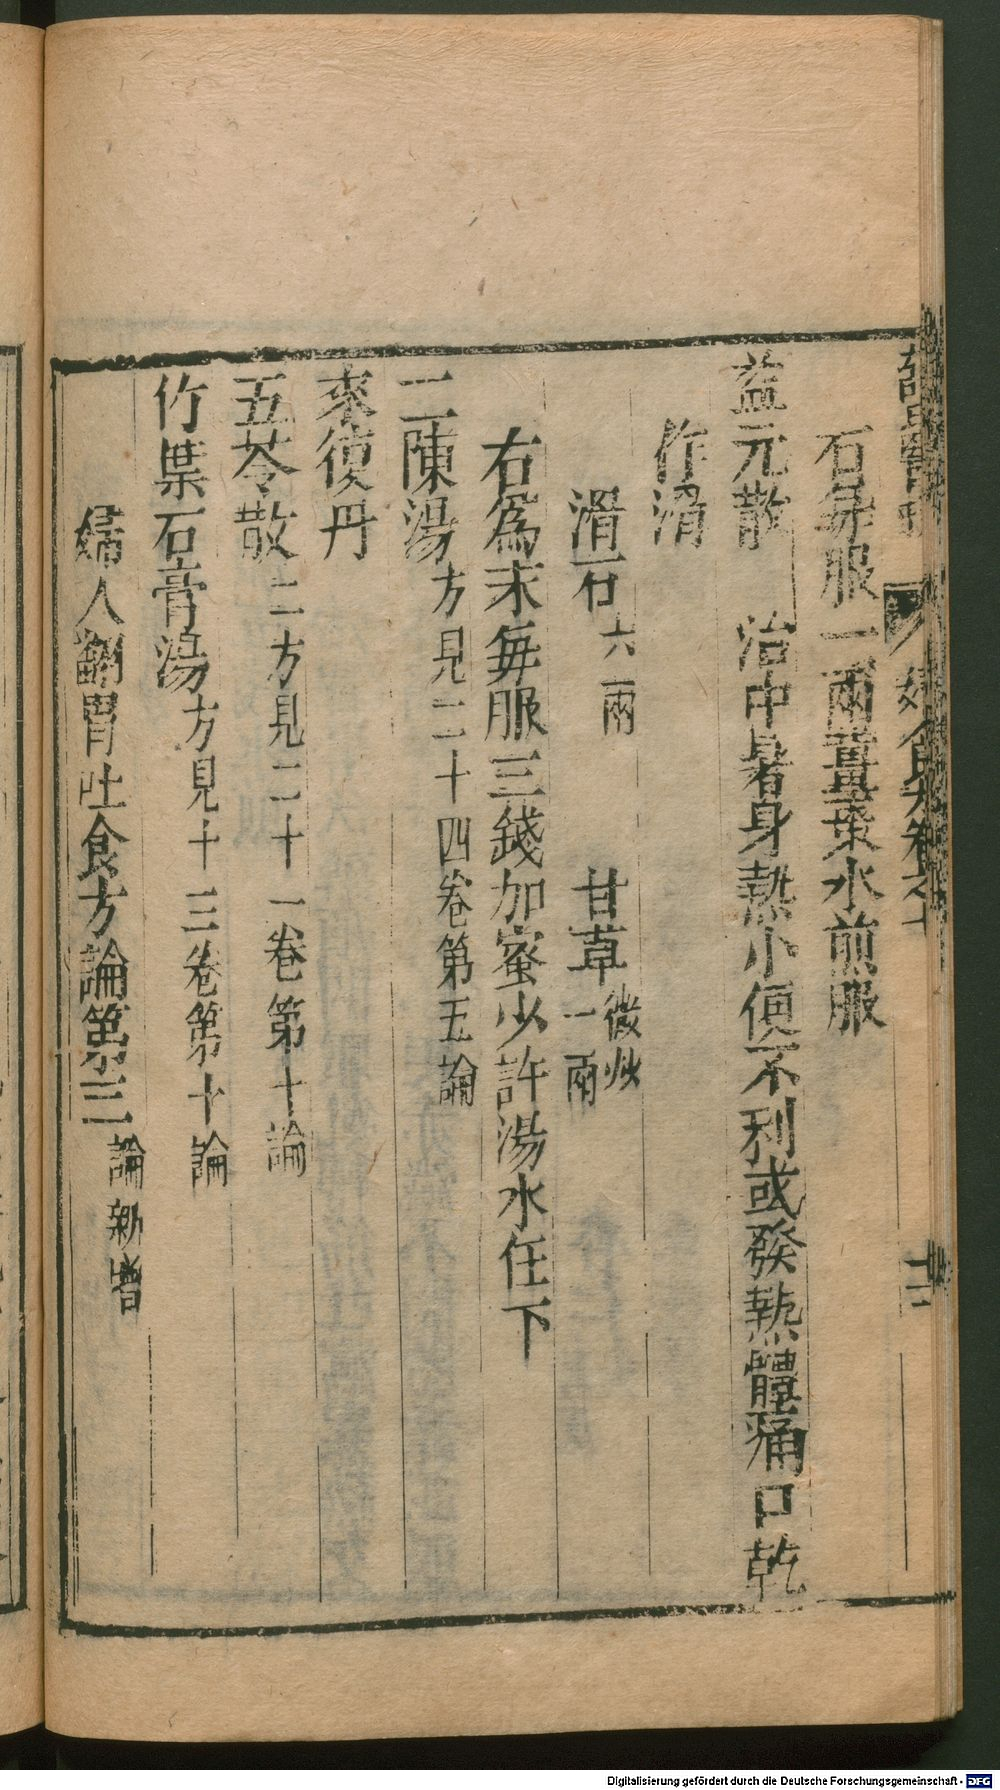 石每服一兩薑棗水煎服
益元散 治中暑身熱小便不利或發熱體痛口乾
作瀉
滑石六兩 甘草微炒一兩
右為末每服三錢加蜜少許湯水任下
二陳湯方見二十四卷第五論
來復丹
五苓散二方見二十一卷第十論
竹葉石膏湯方見十三卷第十論
婦人翻胃吐食方論第三論新增
Digitalisierung gefördert durch die Deutsche Forschungsgemeinschaft - DFG